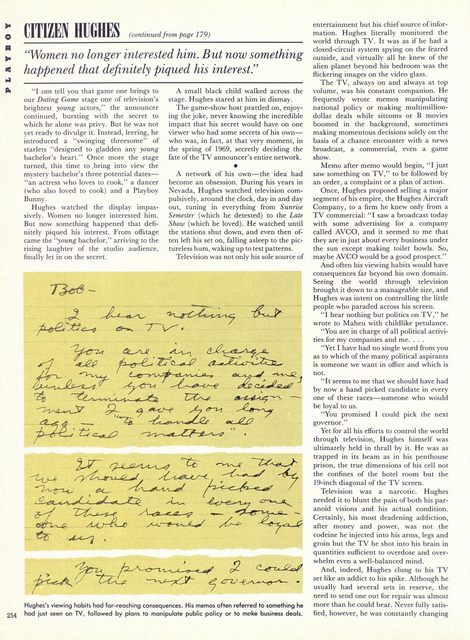 PLAYBOY
CITIZEN HUGHES (continued from page 179)
"Women no longer interested him. But now something
happened that definitely piqued his interest."
"I can tell you that game one brings to
our Dating Game stage one of television's
brightest young actors," the announcer
continued, bursting with the secret to
which he alone was privy. But he was not
yet ready to divulge it. Instead, leering, he
introduced a "swinging threesome" of
starlets "designed to gladden any young
bachelor's heart." Once more the stage
turned, this time to bring into view the
mystery bachelor's three potential dates—
"an actress who loves to cook," a dancer
(who also loved to cook) and a Playboy
Bunny.
Hughes watched the display impas-
sively. Women no longer interested him.
But now something happened that defi-
nitely piqued his interest. From offstage
came the "young bachelor," arriving to the
rising laughter of the studio audience,
finally let in on the secret.
A small black child walked across the
stage. Hughes stared at him in dismay.
The game-show host prattled on, enjoy-
ing the joke, never knowing the incredible
impact that his secret would have on one
viewer who had some secrets of his own—
who was, in fact, at that very moment, in
the spring of 1969, secretly deciding the
fate of the TV announcer's entire network.
•
A network of his own—the idea had
become an obsession. During his years in
Nevada, Hughes watched television com-
pulsively, around the clock, day in and day
out, tuning in everything from Sunrise
Semester (which he detested) to the Late
Show (which he loved). He watched until
the stations shut down, and even then of-
ten left his set on, falling asleep to the pic-
tureless hum, waking up to test patterns.
Television was not only his sole source of
entertainment but his chief source of infor-
mation. Hughes literally monitored the
world through TV. It was as if he had a
closed-circuit system spying on the feared
outside, and virtually all he knew of the
alien planet beyond his bedroom was the
flickering images on the video glass.
The TV, always on and always at top
volume, was his constant companion. He
frequently wrote memos manipulating
national policy or making multimillion-
dollar deals while sitcoms or B movies
boomed in the background, sometimes
making momentous decisions solely on the
basis of a chance encounter with a news
broadcast, a commercial, even a game
show.
Memo after memo would begin, "I just
saw something on TV," to be followed by
an order, a complaint or a plan of action.
Once, Hughes proposed selling a major
segment of his empire, the Hughes Aircraft
Company, to a firm he knew only from a
TV commercial: "I saw a broadcast today
with some advertising for a company
called AVCO, and it seemed to me that
they are in just about every business under
the sun except making toilet bowls. So,
maybe AVCO would be a good prospect."
And often his viewing habits would have
consequences far beyond his own domain.
Seeing the world through television
brought it down to a manageable size, and
Hughes was intent on controlling the little
people who paraded across his screen.
"I hear nothing but politics on TV," he
wrote to Maheu with childlike petulance.
"You are in charge of all political activi-
ties for my companies and me. . . .
"Yet I have had no single word from you
as to which of the many political aspirants
is someone we want in office and which is
not.
"It seems to me that we should have had
by now a hand picked candidate in every
one of these races—someone who would
be loyal to us.
"You promised I could pick the next
governor."
Yet for all his efforts to control the world
through television, Hughes himself was
ultimately held in thrall by it. He was as
trapped in its beam as in his penthouse
prison, the true dimensions of his cell not
the confines of the hotel room but the
19-inch diagonal of the TV screen.
Television was a narcotic. Hughes
needed it to blunt the pain of both his par-
anoid visions and his actual condition.
Certainly, his most deadening addiction,
after money and power, was not the
codeine he injected into his arms, legs and
groin but the TV he shot into his brain in
quantities sufficient to overdose and over-
whelm even a well-balanced mind.
And, indeed, Hughes clung to his TV
set like an addict to his spike. Although he
usually had several sets in reserve, the
need to send one out for repair was almost
more than he could bear. Never fully satis-
fied, however, he was constantly changing
Bob—
I hear nothing but
politics on TV.
You are in charge
of all political activities
for my companies and me,
unless you have decided
to terminate the assign-
ment I gave you long
ago "to handle all
political matters".
It seems to me that
we should have had by
now a hand picked
candidate in every one
of these races – some-
one who would be loyal
to us.
You promised I could
pick the next governor.
Hughes's viewing habits had far-reaching consequences. His memos often referred to something he
had just seen on TV, followed by plans to manipulate public policy or to make business deals.
254